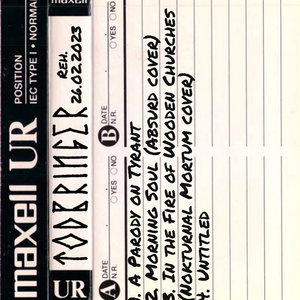 maxell
maxell UR
POSITION
IEC TYPE I • NORMA
UR
TODBRINGER
REH.
26.02.2023
A DATE
N.R. YES NO
B DATE
N.R. YES NO
1. A PARODY ON TYRANT
2. MORNING SOUL (ABSURD COVER)
3. IN THE FIRE OF WOODEN CHURCHES
(NOKTURNAL MORTUM COVER)
4. UNTITLED